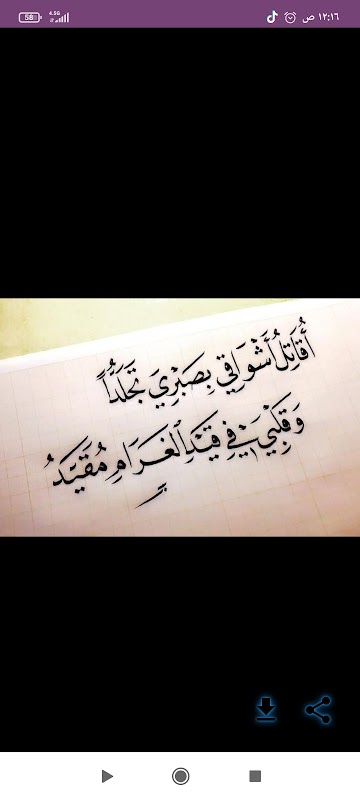 58 4.5G ١٢:١٦ ص
أُقَاتِلُ أَشْوَاقِي بِصَبْرِي تَجَلُّدًا
وَقَلْبِي فِي قَيْدِ الغَرَامِ مُقَيَّدُ